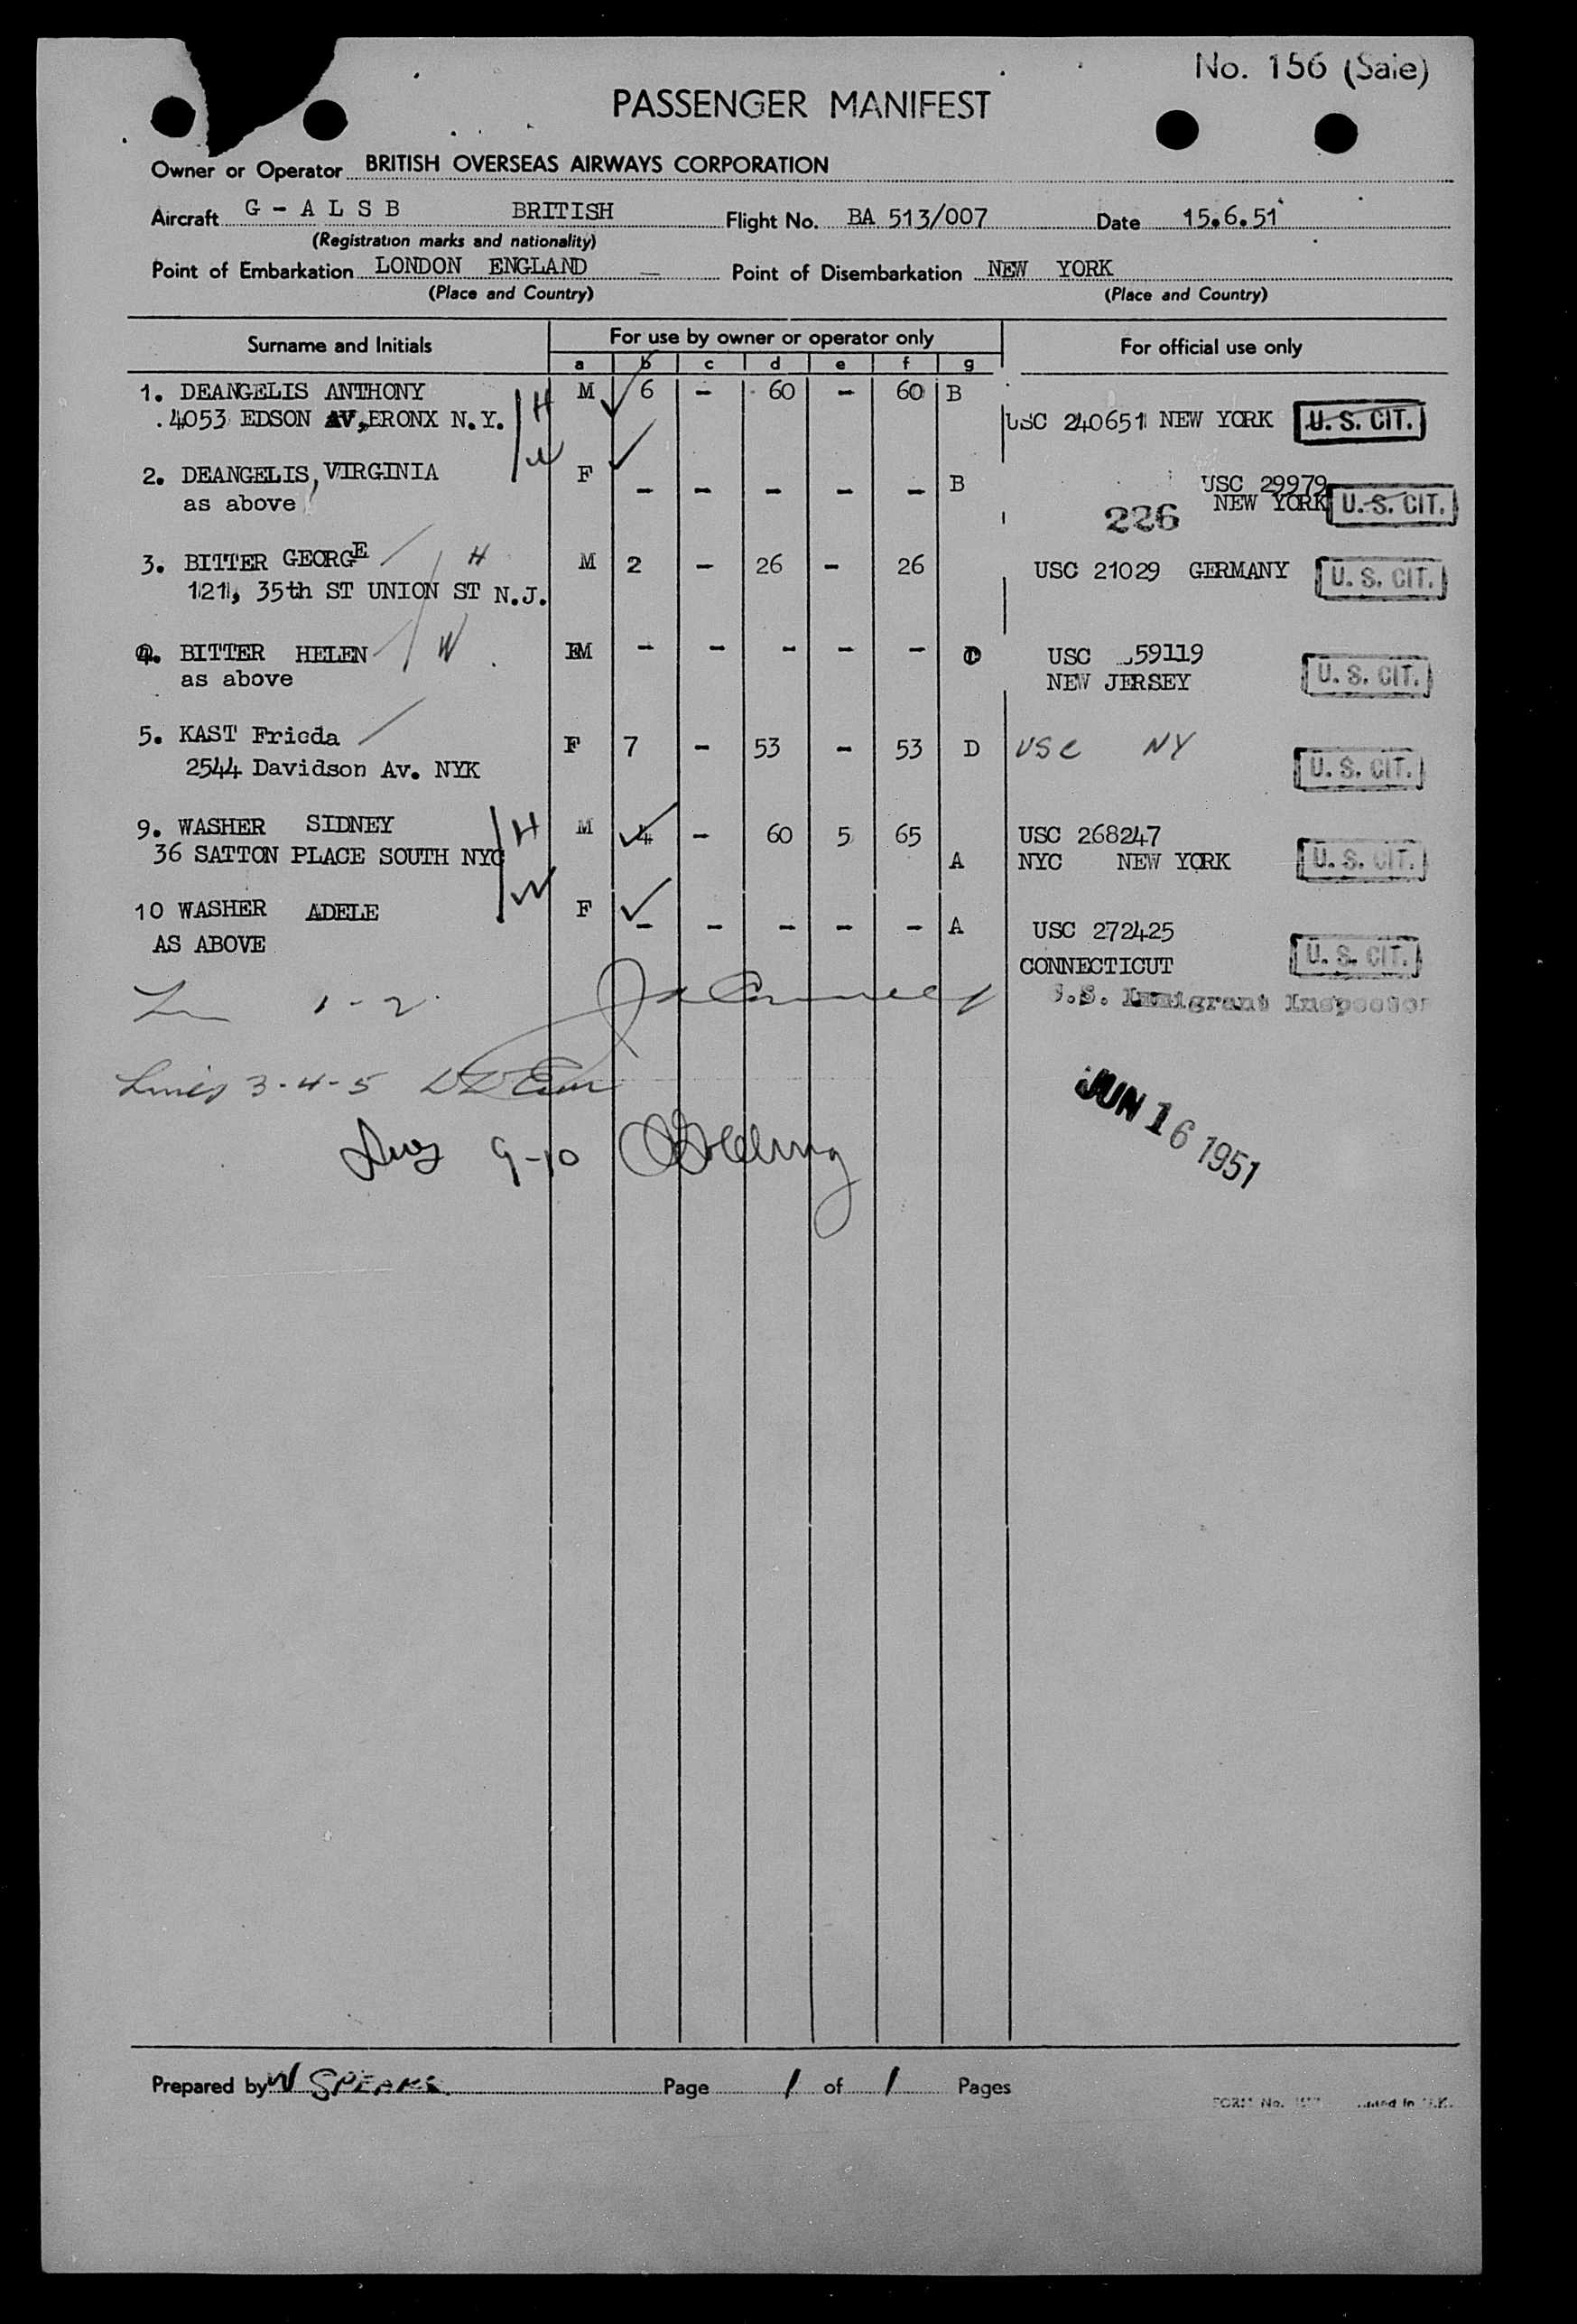 No. 156 (Sale)
PASSENGER MANIFEST
Owner or Operator BRITISH OVERSEAS AIRWAYS CORPORATION
Aircraft G - A L S B BRITISH Flight No. BA 513/007 Date 15.6.51
(Registration marks and nationality)
Point of Embarkation LONDON ENGLAND — Point of Disembarkation NEW YORK
(Place and Country) (Place and Country)
Surname and Initials For use by owner or operator only For official use only
a b c d e f g
1. DEANGELIS ANTHONY H M 6 - 60 - 60 B
4053 EDSON AV, BRONX N.Y. USC 240651 NEW YORK U. S. CIT.
W
2. DEANGELIS, VIRGINIA F - - - - - B USC 29979
as above NEW YORK U. S. CIT.
226
3. BITTER GEORGE H M 2 - 26 - 26 USC 21029 GERMANY U. S. CIT.
121, 35th ST UNION ST N.J.
4. BITTER HELEN W - - - - - USC 59119
as above NEW JERSEY U. S. CIT.
5. KAST Frieda F 7 - 53 - 53 D USC NY
2544 Davidson Av. NYK U. S. CIT.
9. WASHER SIDNEY H M 4 - 60 5 65 USC 268247
36 SATTON PLACE SOUTH NYC A NYC NEW YORK U. S. CIT.
W
10 WASHER ADELE F - - - - - A USC 272425
AS ABOVE CONNECTICUT U. S. CIT.
1 - 2 U.S. Immigrant Inspector
Lines 3-4-5
JUN 16 1951
9-10
Prepared by W SPEAKS Page 1 of 1 Pages
FORM No. Printed in U.K.